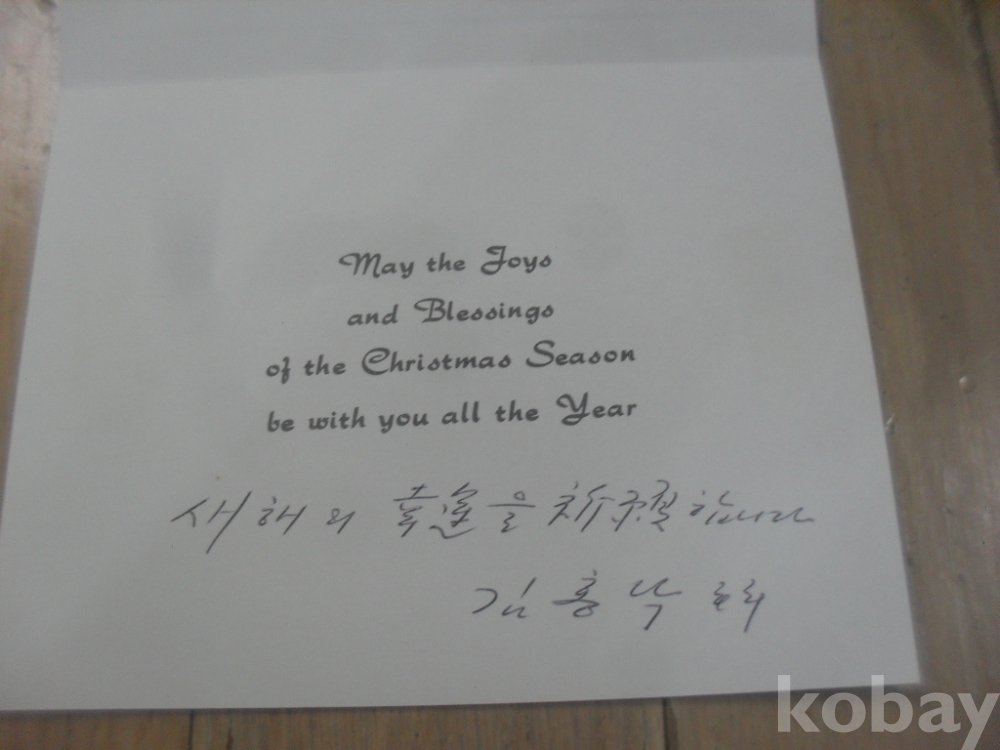 May the Joys
and Blessings
of the Christmas Season
be with you all the Year
새해의 幸運을 祈祝합니다
김홍
kobay